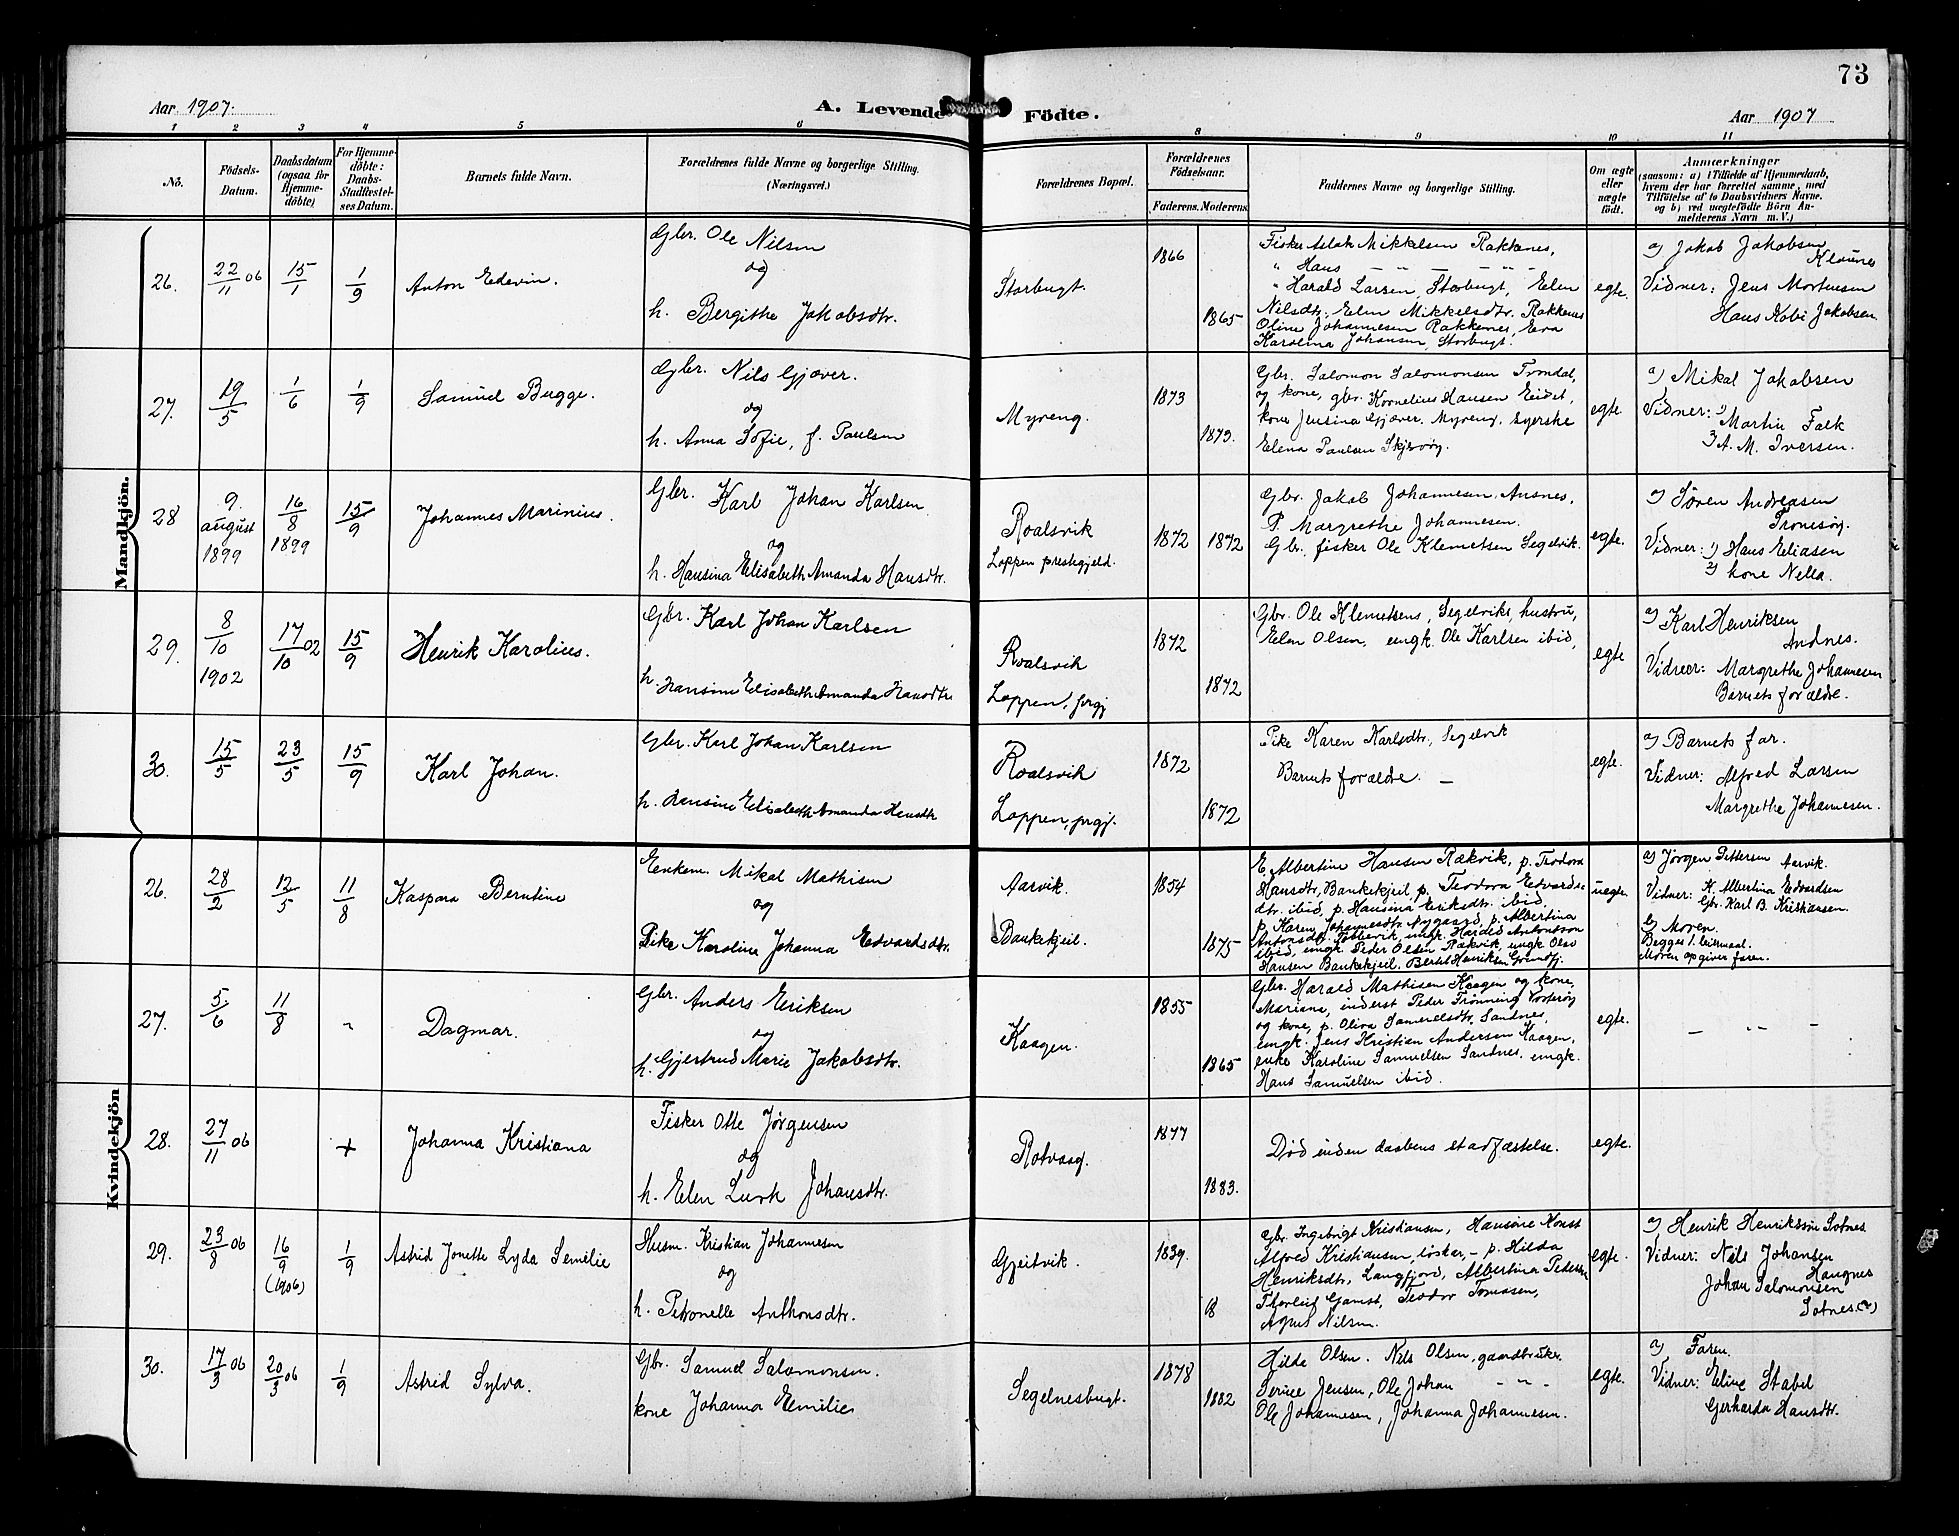 73
Aar 1907.
A. Levende Födte.
Aar 1907
1 2 3 4 5 6 8 9 10 11
No.
Födsels-Datum.
Daabsdatum (ogsaa for Hjemme-döbte)
For Hjemme-döbte: Daabs-Stadfæstel-ses Datum.
Barnets fulde Navn.
Forældrenes fulde Navne og borgerlige Stilling.
(Næringsvei.)
Forældrenes Bopæl.
Forældrenes Födselsaar.
Faderens. Moderens.
Faddernes Navne og borgerlige Stilling.
Om ægte eller uægte födt.
Anmærkninger
(saasom: a) i Tilfælde af Hjemmedaab,
hvem der har forrettet samme, med
Tilföielse af to Daabsvidners Navne.
og b) ved uægtefödte Börn An-
melderens Navn m. V.)
Mandkjön.
26.
22/11 06
15/1
1/9
Anton Edevin.
Gbr. Ole Nilsen
og
h. Bergithe Jakobsdtr.
Storbugt.
1866
1865
Fisker Aslak Mikkelsen Rakkenes,
" Hans — " — " —
" Harald Larsen, Storbugt, Elen
Nilsdtr. Elen Mikkelsdtr. Rakkenes
Oline Johannesen Rakkenes, Eva
Karolina Johansen, Storbugt.
egte.
a) Jakob Jakobsen
Vidner: Jens Mortensen
Hans Kobi Jakobsen
27.
19/5
1/6
1/9
Samuel Bugge.
Gbr. Nils Gjæver.
og
h. Anna Sofie, f. Paulsen
Myreng.
1873
1873.
Gbr. Salomon Salomonsen
og kone, gbr. Kornelius Hansen Eidet,
kone Jensina Gjæver. Myreng, syerske
Elena Paulsen Skjervøy.
egte.
a) Mikal Jakobsen
Vidner: 1)
Martin Falk
2) A. M. Iversen.
28
9. august 1899
16/8 1899
15/9
Johannes Marinius.
Gbr. Karl Johan Karlsen
og
h. Hansina Elisabeth Amanda Hansdtr.
Roalsvik
Loppen prestegjeld.
1872
1872
Gbr. Jakob Johannesen. Ansnes,
P. Margrethe Johannesen.
Gbr. fisker Ole Klemetsen Segelvik.
egte.
a) Søren Andreasen
Vidner: 1) Hans Eliasen
2) kone Nella.
29.
8/10 1902
17/10 02
15/9
Henrik Karolius.
Gbr. Karl Johan Karlsen
h. Hansine Elisabeth Amanda Hansdtr
Roalsvik
Loppen, prgj
1872
1872
Gbr. Ole Klemetsens, Segelvik, hustru,
Elen Olsen, ungk. Ole Karlsen ibid,
egte
a) Karl Henriksen
Andnes.
Vidner: Margrethe Johannesen
Barnets forældre.
30.
15/5
23/5
15/9
Karl Johan.
Gbr. Karl Johan Karlsen
h. Hansine Elisabeth Amanda Hansdtr
Roalsvik
Loppen, prgj.
1872
1872
Pike Karen Karlsdtr., Segelvik
Barnets forældre. —
egte.
a) Barnets far.
Vidner: Alfred Larsen
Margrethe Johannesen.
Kvindekjön
26.
28/2
12/5
11/8
Kaspara Berntine
Enkem. Mikal Mathisen
og
Pike Karoline Johanna Edvardsdtr.
Aarvik.
Bankekjeil.
1854
1875
E. Albertine Hansen Rækvik, p. Teodora
Hansdtr, Bankekjeil, p. Teodora Edvards-
dtr. ibid, p. Hansina Eriksdtr. ibid.
p. Karen Johannesdtr. Nygaard, p. Albertina
Antonsdtr. ungk. Harald Antonsson
ibid, ungk. Peder Olsen Rækvik, ungk. Olav
Hansen Bankekjeil. Bertel Henriksen
uegte.
a) Jørgen Pettersen Aarvik.
Vidner: K. Albertina Edvardsen
Gbr. Karl B. Kristiansen.
b) Moren.
Begges 1. leiermaal.
Moren opgiver faren.
27.
5/6
11/8
"
Dagmar.
Gbr. Anders Eriksen
og
h. Gjertrud Marie Jakobsdtr.
Kaagen.
1855
1865
Gbr. Harald Mathisen Kaagen og kone,
Mariana, inderst Peder Frønning
og kone, p. Oliva Samuelsdtr. Sandnes,
ungk. Jens Kristian Andersen Kaagen,
enke Karoline Samuelsen Sandnes. ungk.
Hans Samuelsen ibid.
egte.
— " —
28.
27/11 06
+
Johanna Kristiana
Fisker Otte Jørgensen
og
h. Elen Lurk Johansdtr.
Rotvaag.
1877
1883.
Død inden daabens stadfæstelse.
egte.
29.
23/8 06
16/9 (1906)
1/9
Astrid Jonette Lyda Semelie
Husm. Kristian Johannesen
og
h. Petronelle Anthonsdtr.
Gjeitvik.
1839.
18
Gbr. Ingebrigt Kristiansen, Hansine
Alfred Kristiansen, løskar, — p. Hilda
Henriksdtr, Langfjord, Albertina Pedersen
Thorleif Gamst, Teodor Tomasen,
Agnes Nilsen.
egte.
a) Henrik Henriksen Sotnes
Vidner: Nils Johansen
Haugnes
Johan Salomonsen
Sotnes (a)
30.
17/3 06
20/3 06
1/9
Astrid Sylva.
Gbr. Samuel Salamonsen.
kone Johanna Emilie
Segelnesbugt.
1878
1882
Hilde Olsen. Nils Olsen, gaardbruker.
Serine Jensen, Ole Johan — " —
Ole Johannesen, Johanna Johannesen.
egte.
a) Faren.
Vidner: Eline Stabel
Gerharda Hansdtr.